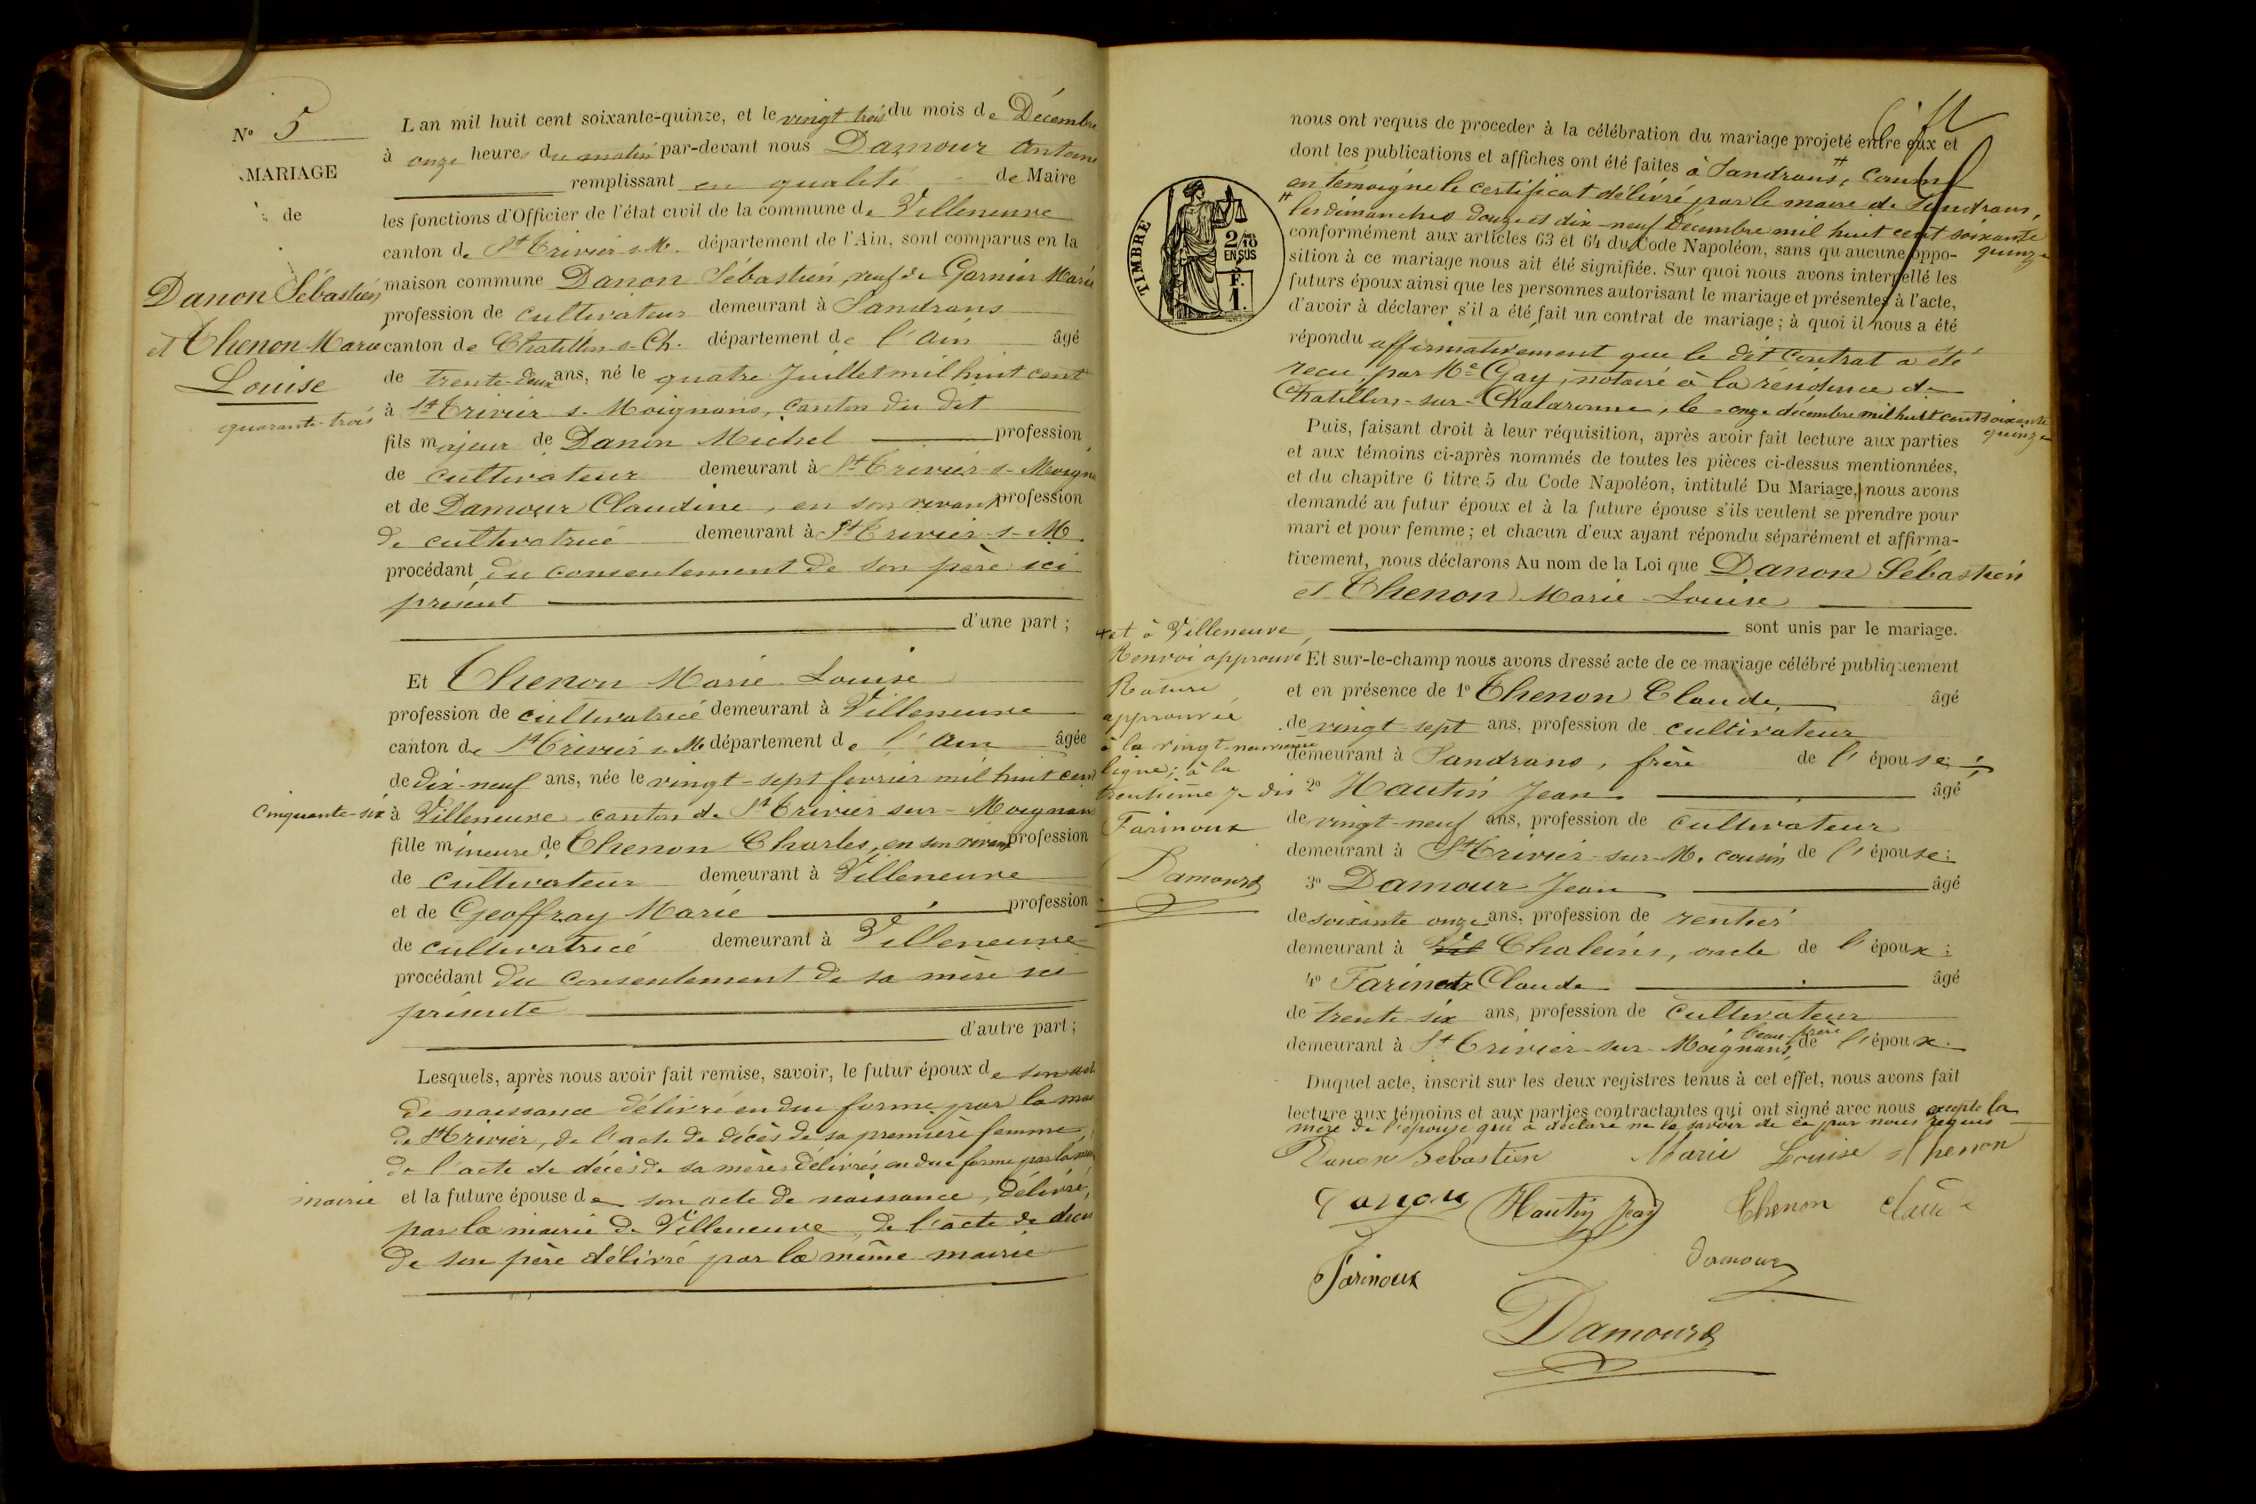 N° 5
MARIAGE
de
Danon Sébastien
et Thenon Marie
Louise
quarante-trois
L an mil huit cent soixante-quinze, et le vingt trois du mois de Décembre
à onze heures du matin par-devant nous Damour Antoine
remplissant en qualité de Maire
les fonctions d'Officier de l'état civil de la commune de Villeneuve
canton de St Trivier s. M. département de l'Ain, sont comparus en la
maison commune Danon Sébastien, veuf de Garnier Marie
profession de cultivateur demeurant à Sandrans
canton de Chatillon s. Ch. département de l'Ain âgé
de trente-deux ans, né le quatre Juillet mil huit cent
à St Trivier s. Moignans, canton du dit
fils majeur de Danon Michel profession
de cultivateur demeurant à St Trivier s. Moign
et de Damour Claudine, en son vivant profession
de cultivatrice demeurant à St Trivier s. M.
procédant du consentement de son père ici
présent
d'une part ;
Et Thenon Marie Louise
profession de cultivatrice demeurant à Villeneuve
canton de St Trivier s. M. département de l'Ain âgée
de dix-neuf ans, née le vingt-sept fevrier mil huit cent
cinquante-six à Villeneuve canton de St Trivier sur Moignans
fille mineure de Thenon Charles, en son vivant profession
de cultivateur demeurant à Villeneuve
et de Geoffray Marie profession
de cultivatrice demeurant à Villeneuve
procédant du consentement de sa mère ici
présente
d'autre part ;
Lesquels, après nous avoir fait remise, savoir, le futur époux de son acte
de naissance délivré en due forme par la mai
de St Trivier, de l'acte de décès de sa première femme,
de l'acte de décès de sa mère délivrés en due forme par la m
mairie et la future épouse de son acte de naissance, délivré,
par la mairie de Villeneuve, de l'acte de décès
de son père délivré par la même mairie
nous ont requis de proceder à la célébration du mariage projeté entre eux et
dont les publications et affiches ont été faites à Sandrans, comme
en témoigne le certificat délivré par le maire de Sandrans,
les dimanches douze et dix-neuf Décembre mil huit cent soixante
quinze
conformément aux articles 63 et 64 du Code Napoléon, sans qu aucune oppo-
sition à ce mariage nous ait été signifiée. Sur quoi nous avons interpellé les
futurs époux ainsi que les personnes autorisant le mariage et présentes à l'acte,
d'avoir à déclarer s'il a été fait un contrat de mariage ; à quoi il nous a été
répondu affirmativement que le dit contrat a été
recu par Me Gay, notaire à la résidence de
Chatillon-sur-Chalaronne, le onze décembre mil huit cent soixante
quinze
TIMBRE
2/10 EN SUS
F. 1.
Puis, faisant droit à leur réquisition, après avoir fait lecture aux parties
et aux témoins ci-après nommés de toutes les pièces ci-dessus mentionnées,
et du chapitre 6 titre 5 du Code Napoléon, intitulé Du Mariage, nous avons
demandé au futur époux et à la future épouse s'ils veulent se prendre pour
mari et pour femme ; et chacun d'eux ayant répondu séparément et affirma-
tivement, nous déclarons Au nom de la Loi que Danon Sébastien
et Thenon Marie Louise
sont unis par le mariage.
et à Villeneuve
Renvoi approuvé
Rature
approuvée
à la vingt-neuvième
ligne ; à la
trentième je dis
Farinoux
Damour
Et sur-le-champ nous avons dressé acte de ce mariage célébré publiquement
et en présence de 1° Thenon Claude, âgé
de vingt sept ans, profession de cultivateur
demeurant à Sandrans, frère de l'épouse ;
2° Hautin Jean âgé
de vingt-neuf ans, profession de cultivateur
demeurant à St Trivier sur M. cousin de l'épouse ;
3° Damour Jean âgé
de soixante onze ans, profession de rentier
demeurant à Chaleins, oncle de l'époux ;
4° Farinoux Claude âgé
de trente six ans, profession de cultivateur
demeurant à St Trivier sur Moignans, beau-frère de l'époux.
Duquel acte, inscrit sur les deux registres tenus à cet effet, nous avons fait
lecture aux témoins et aux parties contractantes qui ont signé avec nous excepté la
mère de l'épouse qui a déclaré ne le savoir de ce par nous requis
Danon Sebastien Marie Louise Thenon
Danon Hautin Jean Thenon Claude
Farinoux Damour
Damour